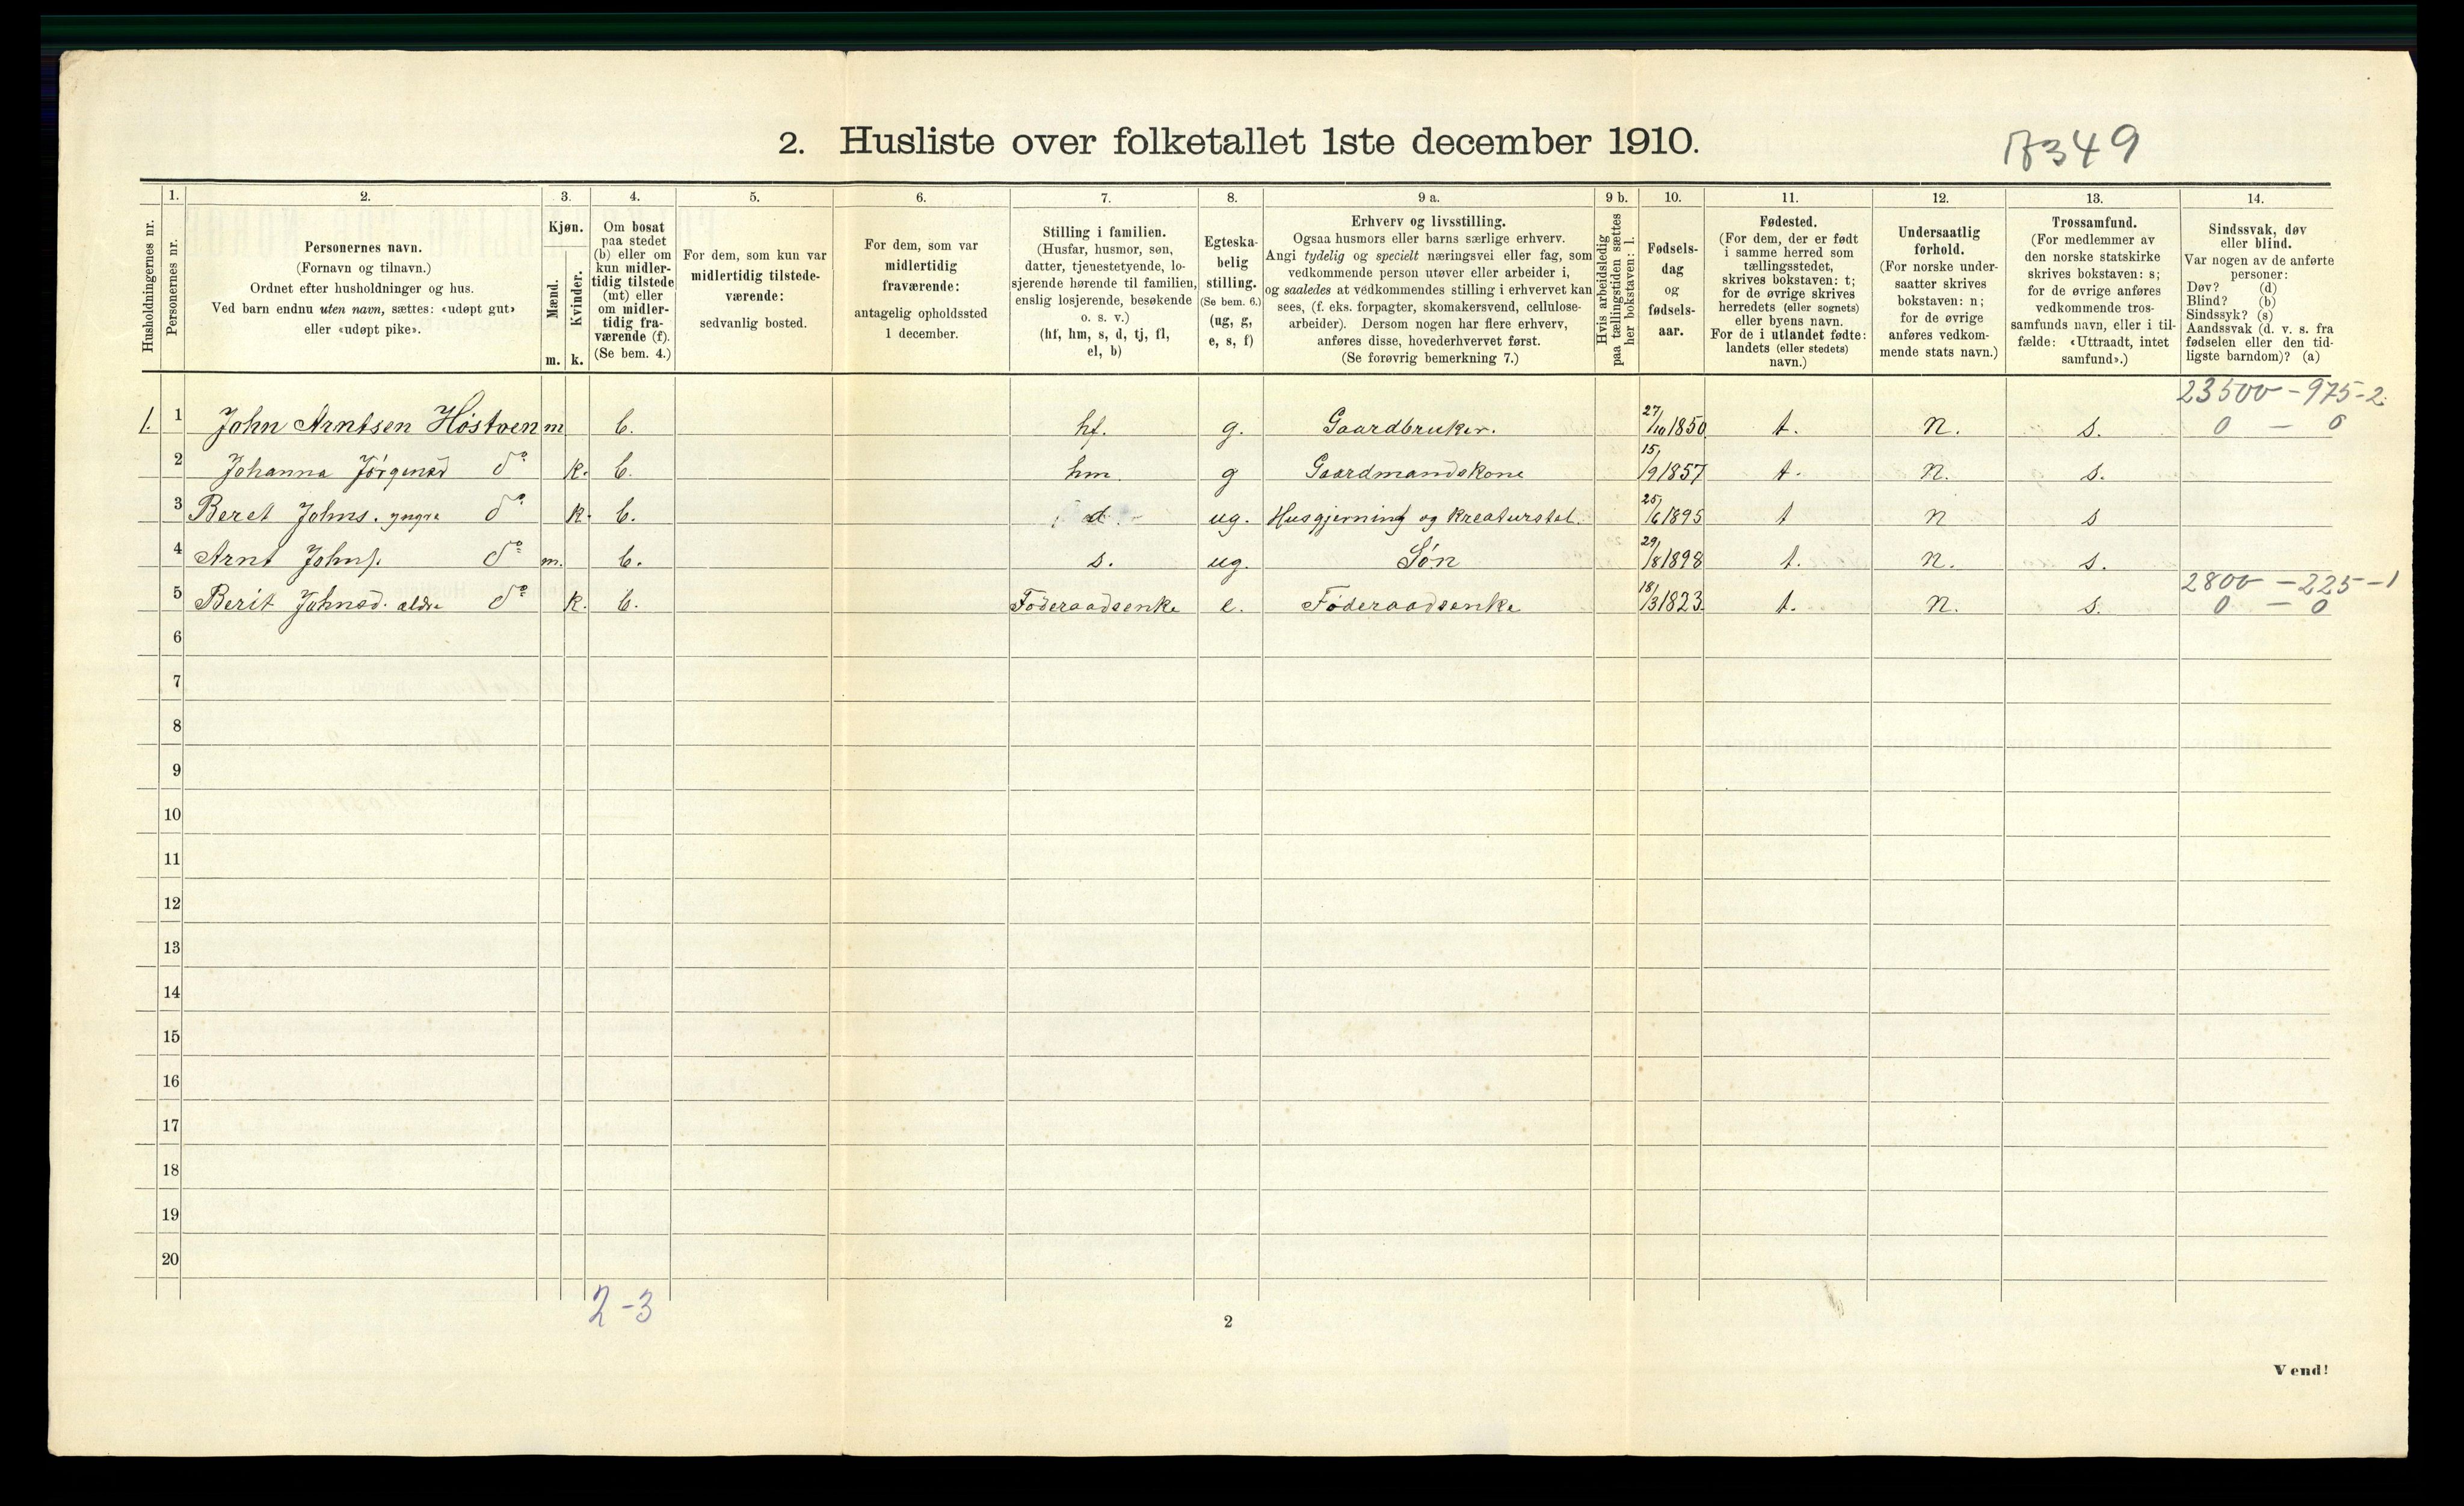 2. Husliste over folketallet 1ste december 1910.
349
Husholdningernes nr.
1.
Personernes nr.
2.
Personernes navn.
(Fornavn og tilnavn.)
Ordnet efter husholdninger og hus.
Ved barn endnu uten navn, sættes: «udøpt gut»
eller «udøpt pike».
3.
Kjøn.
Mænd.
Kvinder.
m. k.
4.
Om bosat
paa stedet
(b) eller om
kun midler-
tidig tilstede
(mt) eller
om midler-
tidig fra-
værende (f).
(Se bem. 4.)
5.
For dem, som kun var
midlertidig tilstede-
værende:
sedvanlig bosted.
6.
For dem, som var
midlertidig
fraværende:
antagelig opholdssted
1 december.
7.
Stilling i familien.
(Husfar, husmor, søn,
datter, tjenestetyende, lo-
sjerende hørende til familien,
enslig losjerende, besøkende
o. s. v.)
(hf, hm, s, d, tj, fl,
el, b)
8.
Egteska-
belig
stilling.
(Se bem. 6.)
(ug, g,
e, s, f)
9 a.
Erhverv og livsstilling.
Ogsaa husmors eller barns særlige erhverv.
Angi tydelig og specielt næringsvei eller fag, som
vedkommende person utøver eller arbeider i,
og saaledes at vedkommendes stilling i erhvervet kan
sees, (f. eks. forpagter, skomakersvend, cellulose-
arbeider). Dersom nogen har flere erhverv,
anføres disse, hovederhvervet først.
(Se forøvrig bemerkning 7.)
9 b.
Hvis arbeidsledig
paa tællingstiden sættes
her bokstaven: l.
10.
Fødsels-
dag
og
fødsels-
aar.
11.
Fødested.
(For dem, der er født
i samme herred som
tællingsstedet,
skrives bokstaven: t;
for de øvrige skrives
herredets (eller sognets)
eller byens navn.
For de i utlandet fødte:
landets (eller stedets)
navn.)
12.
Undersaatlig
forhold.
(For norske under-
saatter skrives
bokstaven: n;
for de øvrige
anføres vedkom-
mende stats navn.)
13.
Trossamfund.
(For medlemmer av
den norske statskirke
skrives bokstaven: s;
for de øvrige anføres
vedkommende tros-
samfunds navn, eller i til-
fælde: «Uttraadt, intet
samfund».)
14.
Sindssvak, døv
eller blind.
Var nogen av de anførte
personer:
Døv? (d)
Blind? (b)
Sindssyk? (s)
Aandssvak (d. v. s. fra
fødselen eller den tid-
ligste barndom)? (a)
23500 - 975 - 2
1. 1 John Arntsen Höstven m b. hf. g. Gaardbruker. 27/10 1850 t. n. s. 0 - 0
2 Johanna Jörgensd do k. b. hm. g Gaardmandskone 15/9 1857 t. n. s.
3 Beret Johns. yngre do k. b. d ug. Husgjerning og Kreaturstel. 25/6 1895 t n s
4 Arnt Johns. do m. b. s. ug. Sön 29/8 1898 t. n. s.
2800 - 225 - 1
5 Berit Johnsd. ældre do k. b. Föderaadsenke e. Föderaadsenke 18/3 1823 t. n. s. 0 - 0
6
7
8
9
10
11
12
13
14
15
16
17
18
19
20
2 - 3
2
Vend!